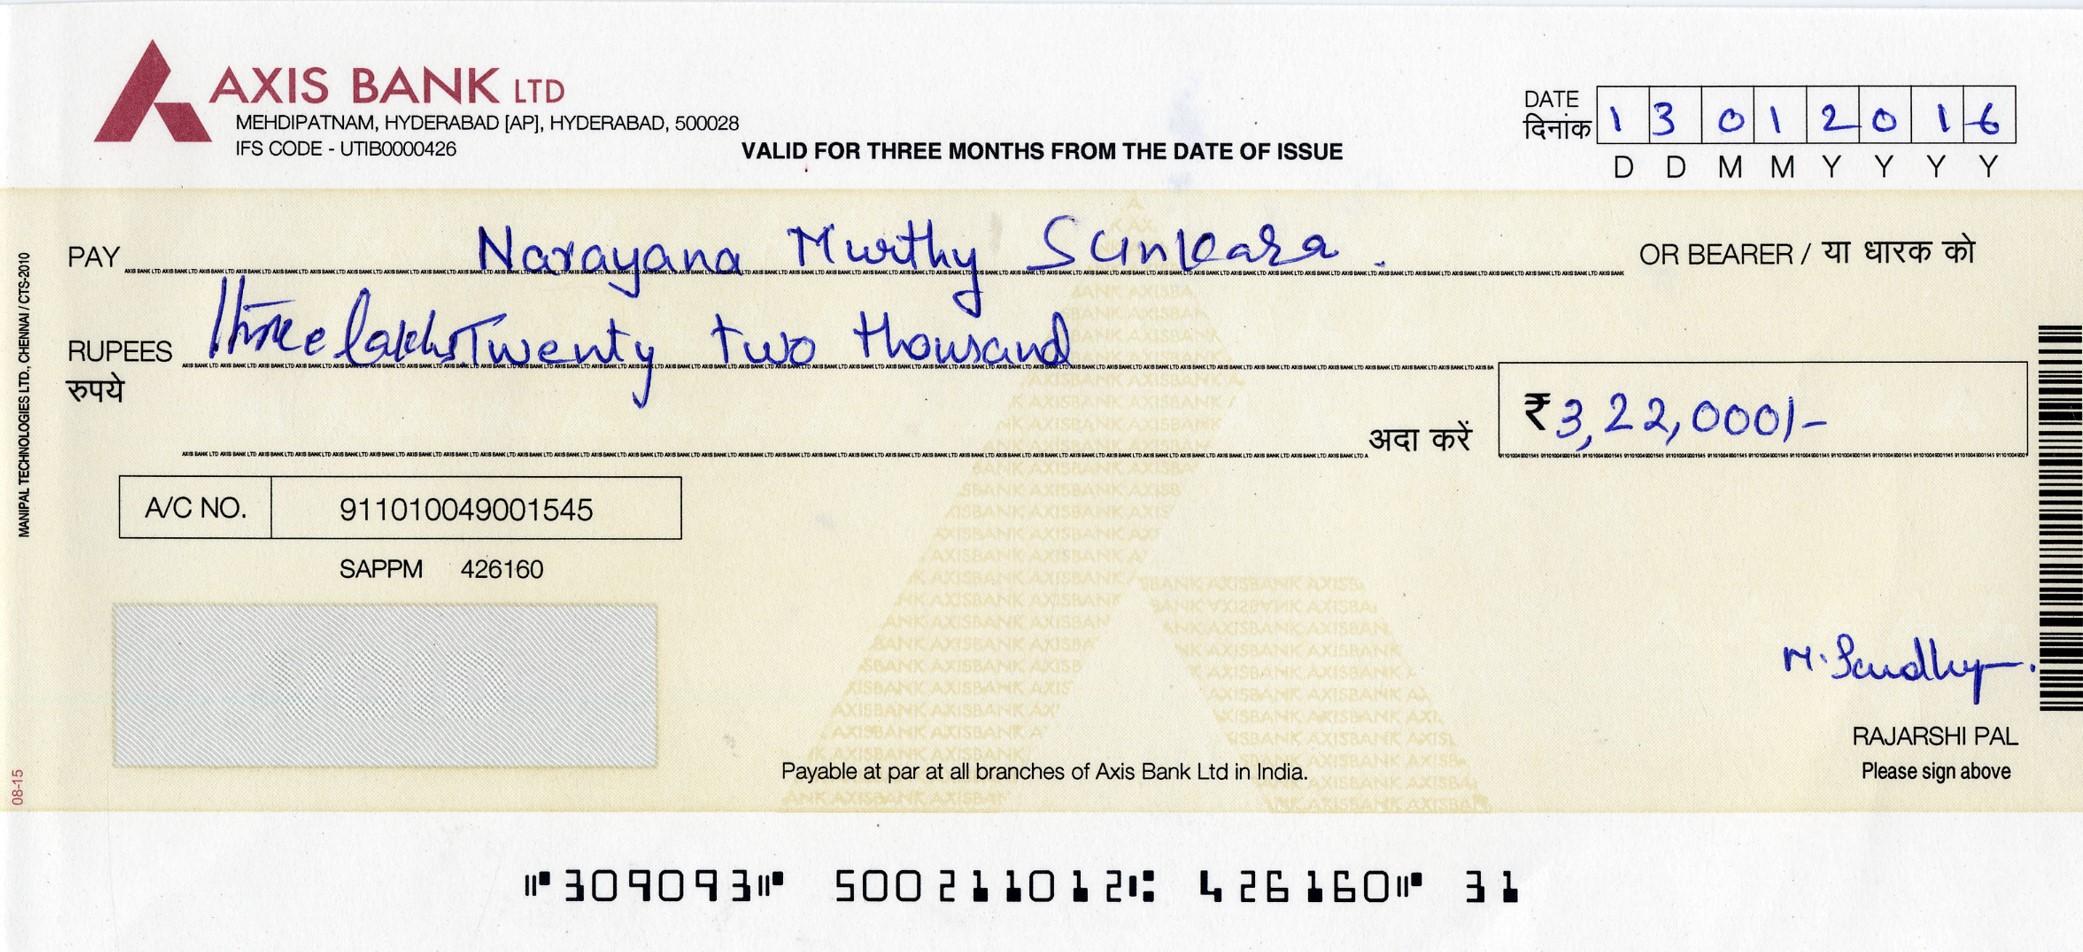 AXIS BANK LTD
MEHDIPATNAM, HYDERABAD [AP], HYDERABAD, 500028
IFS CODE - UTIB0000426
VALID FOR THREE MONTHS FROM THE DATE OF ISSUE
DATE
दिनांक
1 3 0 1 2 0 1 6
D D M M Y Y Y Y
PAY Narayana Murthy Sunkara. OR BEARER / या धारक को
RUPEES Three lakhs Twenty two thousand
रुपये
अदा करें ₹ 3,22,000/-
A/C NO. 911010049001545
SAPPM 426160
VOID
M. Sandhy
RAJARSHI PAL
Please sign above
Payable at par at all branches of Axis Bank Ltd in India.
MANIPAL TECHNOLOGIES LTD., CHENNAI / CTS-2010
08-15
⑈309093⑈ 500211012⑆ 426160⑈ 31